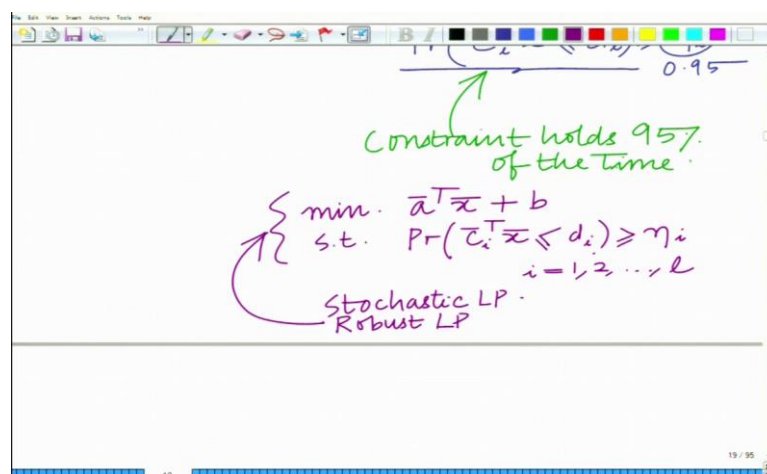 File Edit View Insert Actions Tools Help
B I
0.95
Constraint holds 95%
of the time.
min. a̅ᵀx̅ + b
s.t. Pr(c̅ᵢᵀx̅ ≤ dᵢ) ≥ ηᵢ
i = 1, 2, ..., l
Stochastic LP.
Robust LP
19 / 95